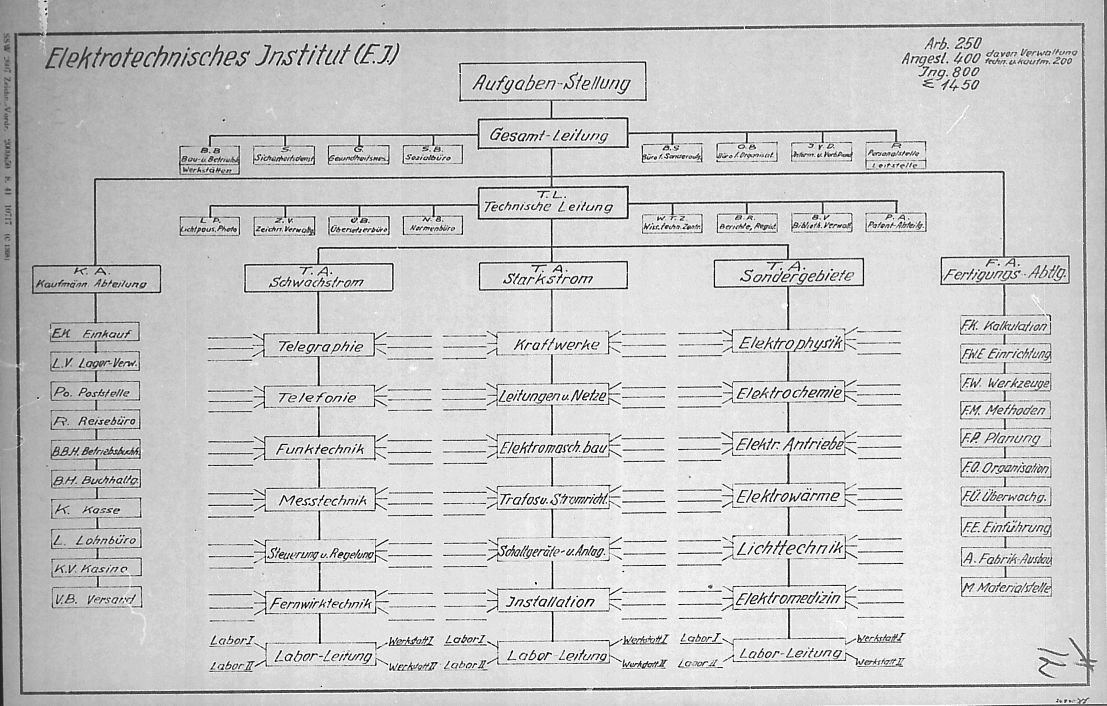 Elektrotechnisches Institut (E.I.)
Arb. 250
Angest. 400 davon Verwaltung
techn. u. kaufm. 200
Ing. 800
Σ 1450
Aufgaben-Stellung
Gesamt-Leitung
B.B
Bau- u. Betriebs
Werkstätten
S.
Sicherheitsdienst
G.
Gesundheitswes.
S.B.
Sozialbüro
B.S
Büro f. Sonderaufg.
O.B
Büro f. Organisat.
J.V.D.
Inform. u. Verb.Dienst
P.
Personalstelle
Leitstelle
T.L.
Technische Leitung
L.P.
Lichtpaus. Photo
Z.V.
Zeichn. Verwaltg.
Ü.B.
Übersetzerbüro
N.B.
Normenbüro
W.T.Z.
Wiss. techn. Zentr.
B.R.
Berichte, Regist.
B.V
Biblioth. Verwalt.
P.A.
Patent-Abteilg.
K.A.
Kaufmänn. Abteilung
T.A.
Schwachstrom
T.A.
Starkstrom
T.A.
Sondergebiete
F.A.
Fertigungs-Abtlg.
E.K. Einkauf
L.V. Lager-Verw.
Po. Poststelle
R. Reisebüro
B.B.H. Betriebsbuchh.
B.H. Buchhaltg.
K. Kasse
L. Lohnbüro
K.V. Kasino
V.B. Versand
Telegraphie
Telefonie
Funktechnik
Messtechnik
Steuerung u. Regelung
Fernwirktechnik
Labor I
Labor II
Labor-Leitung
Werkstatt I
Werkstatt II
Kraftwerke
Leitungen u. Netze
Elektromasch. bau
Trafos u. Stromricht.
Schaltgeräte- u. Anlag.
Installation
Labor I
Labor II
Labor-Leitung
Werkstatt I
Werkstatt II
Elektrophysik
Elektrochemie
Elektr. Antriebe
Elektrowärme
Lichttechnik
Elektromedizin
Labor I
Labor II
Labor-Leitung
Werkstatt I
Werkstatt II
F.K. Kalkulation
F.W.E Einrichtung
F.W. Werkzeuge
F.M. Methoden
F.P. Planung
F.O. Organisation
F.Ü. Überwachg.
F.E. Einführung
A. Fabrik-Ausbau
M. Materialstelle